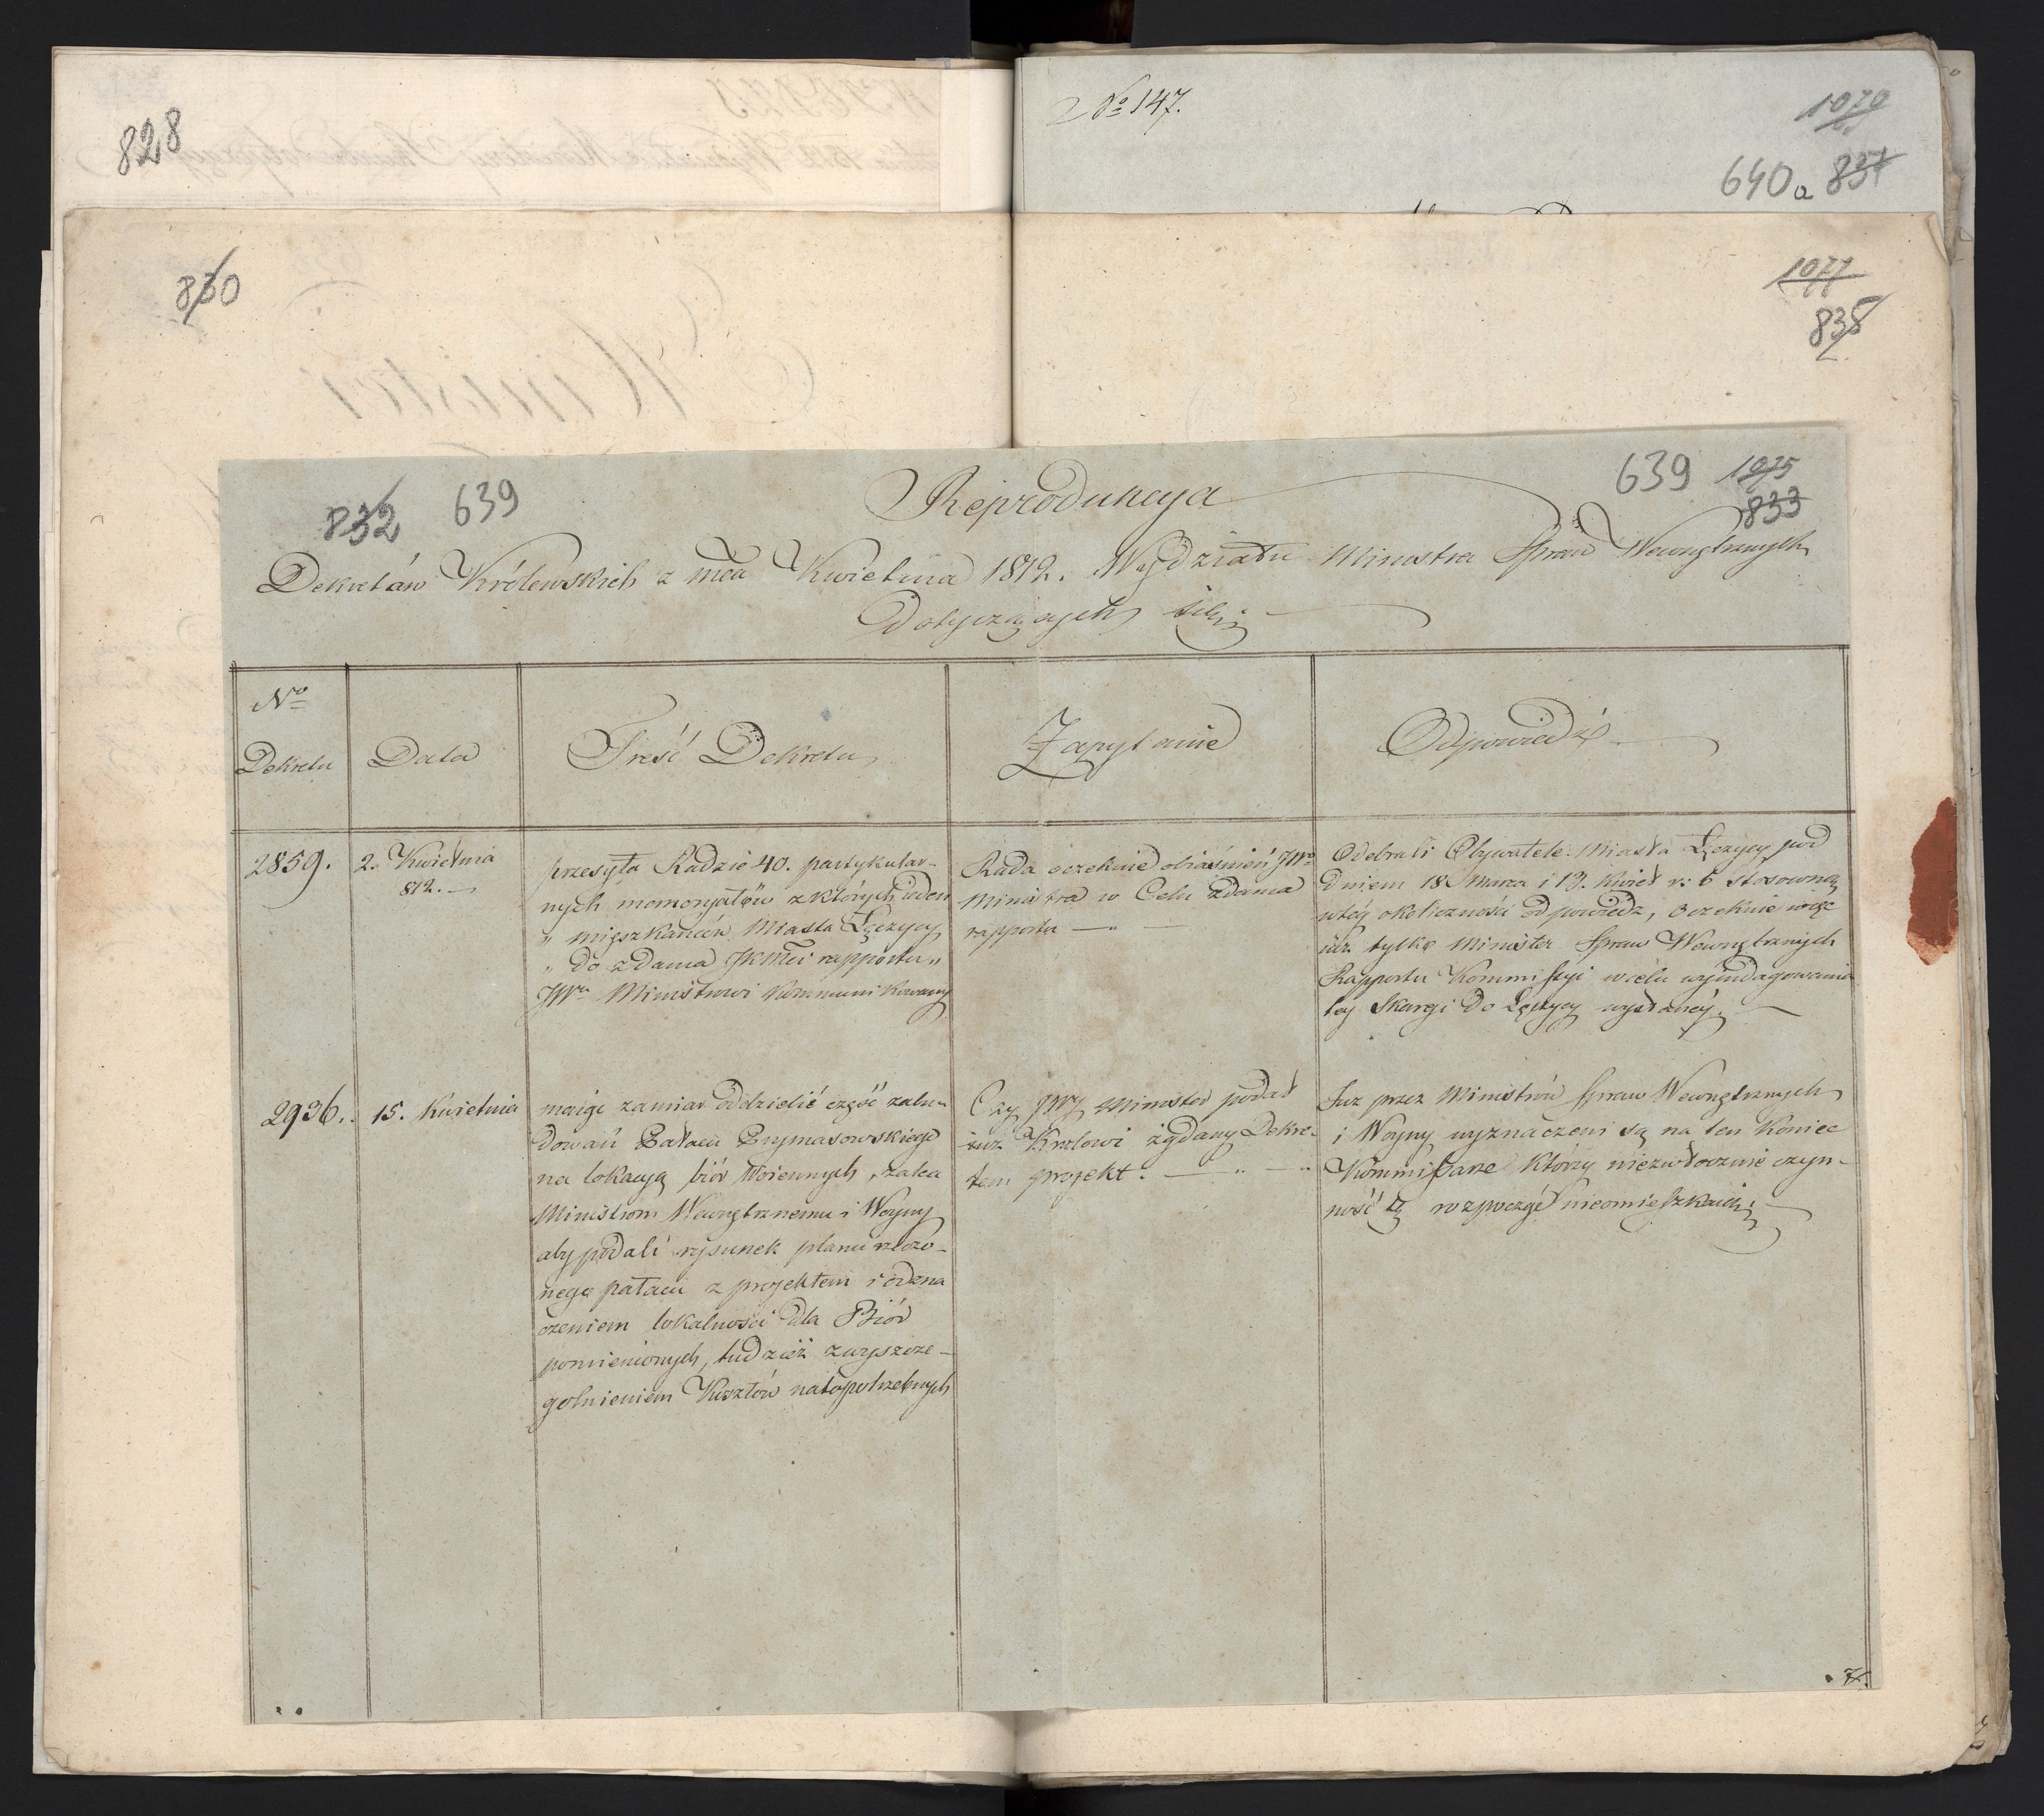 828
No 147.
1079
640a 837
830
1077
838
832 639
639 1075
833
Reprodukcya
Dekretów Królewskich z mca Kwietnia 1812. Wydziału Ministra Spraw Wewnętrznych
Dotyczących się
No
Dekretu
Data
Treść Dekretu
Zapytanie
Odpowiedź
2859.
2. Kwietnia
812.
przesyła Radzie 40. partykular-
nych memoryałów z których ieden
„ mięszkańców Miasta Łęczycy
„ do zdania JKMci rapportu „
JWu Ministrowi kommunikowany
Rada oczekuie obiaśnień JWo
Ministra w Celu zdania
rapportu — „ —
Odebrali Obywatele Miasta Łęczycy pod
Dniem 18 Marca i 19. Kwiet r: b stosowną
w téy okoliczności odpowiedz, oczekuie więc
iuż tylko Minister Spraw Wewnętrznych
Rapportu Kommissyi w celu wyindagowania
tey Skargi do Łęczycy wysłanéy. —
2936.
15. Kwietnia
maiąc zamiar oddzielić część zabu-
dowań Pałacu Prymasowskiego
na lokacyą biór Woiennych, zaleca
Ministrom Wewnętrznemu i Woyny
aby podali rysunek planu rzeczo-
nego pałacu z projektem i ozna
czeniem lokalności dla Biór
pomienionych, tudzież z wyszcze-
gólnieniem Kosztów na to potrzebnych
Czy JWy Minister podał
iuż Królowi żądany Dekre-
tem projekt. — „ — „
Iuz przez Ministrów Spraw Wewnętrznych
i Woyny wyznaczeni są na ten Koniec
Kommissarze Którzy niezwłocznie czyn-
ność tę rozpocząć nieomieszkaią